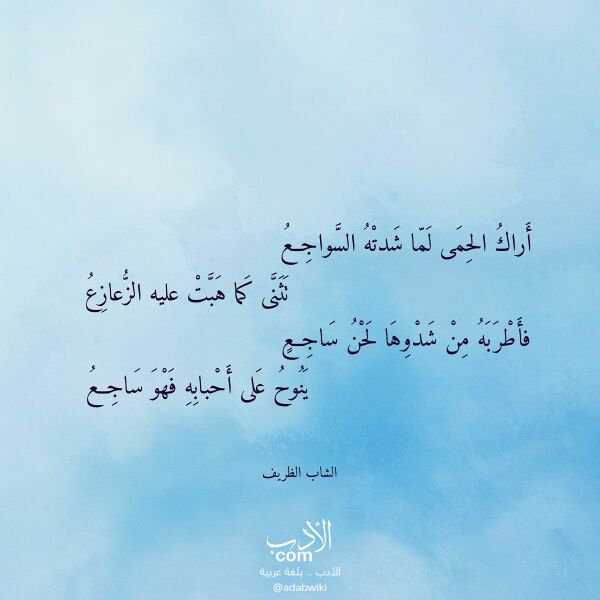 أَراكُ الحِمَى لَمّا شَدتْهُ السَّواجِعُ
تَثَنَّى كَما هَبَّتْ عليه الزُّعازِعُ
فأَطْرَبَهُ مِنْ شَدْوِهَا لَحْنُ سَاجِعٍ
يَنُوحُ عَلى أَحْبابِهِ فَهْوَ سَاجِعُ
الشاب الظريف
الأدب
com
الأدب .. بلغة عربية
@adabwiki